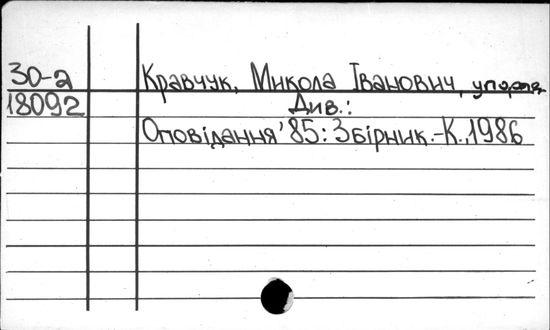 30-а Кравчук, Микола Іванович, упоряд.
18092 Див.:
Оповідання'85: Збірник.-К., 1986